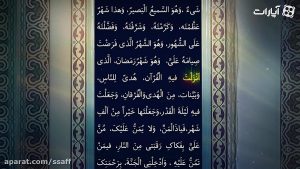 آپارات
شَیءٌ، وَهُوَ السَّمیعُ الْبَصیرُ، وَهذا شَهْرٌ
عَظَّمْتَهُ، وَکَرَّمْتَهُ، وَشَرَّفْتَهُ، وَفَضَّلْتَهُ
عَلَی الشُّهُورِ، وَهُوَ الشَّهْرُ الَّذی فَرَضْتَ
صِیامَهُ عَلَیَّ، وَهُوَ شَهْرُ رَمَضانَ، الَّذی
اَنْزَلْتَ فیهِ الْقُرْآنَ، هُدیً لِلنّاسِ،
وَبَیِّناتٍ، مِنَ الْهُدی وَالْفُرْقانِ، وَجَعَلْتَ
فیهِ لَیْلَةَ الْقَدْرِ، وَجَعَلْتَها خَیْراً مِنْ اَلْفِ
شَهْرٍ، فَیاذَالْمَنِّ، وَلا یُمَنُّ عَلَیْکَ، مُنَّ
عَلَیَّ بِفَکاکِ رَقَبَتی مِنَ النّارِ، فیمَنْ
تَمُنُّ عَلَیْهِ، وَاَدْخِلْنِی الْجَنَّةَ، بِرَحْمَتِکَ
aparat.com/ssaff